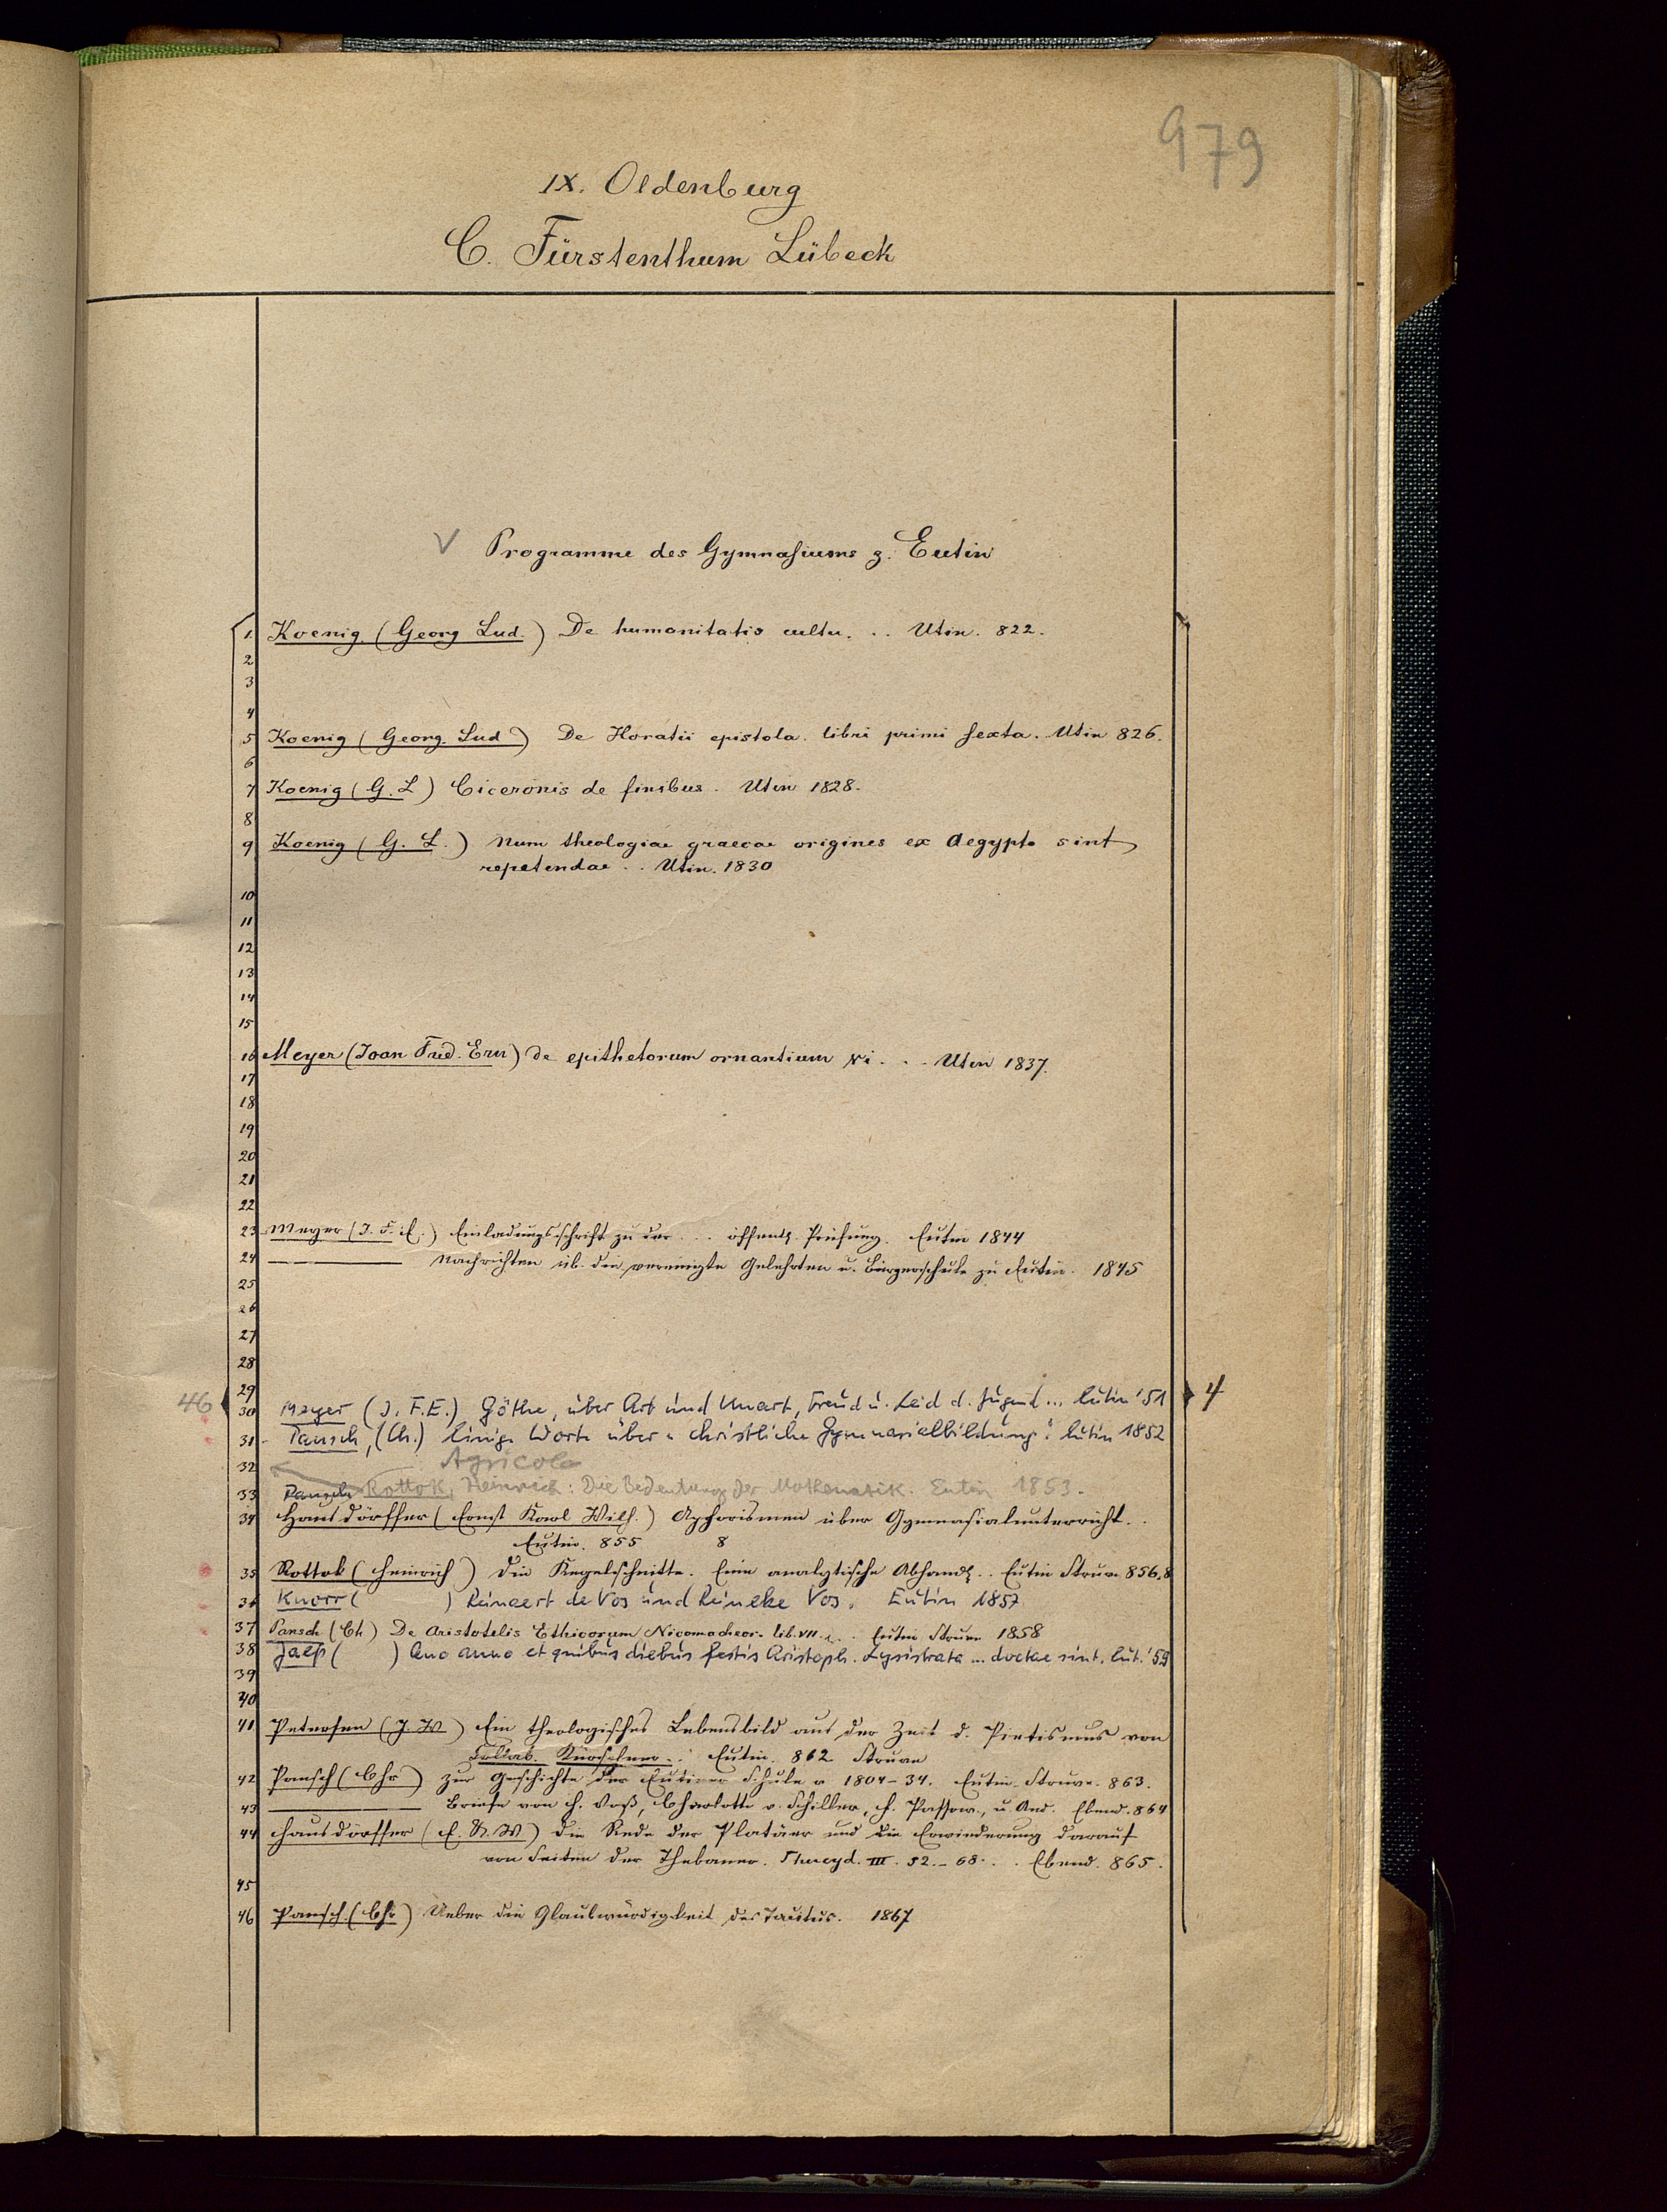 979
IX. Oldenburg
C. Fürstenthum Lübeck
V Programme des Gymnasiums z. Eutin
1. Koenig. (Georg Lud.) De humanitatis cultu. . . Utin. 822.
2
3
4
5 Koenig (Georg. Lud) De Horatii epistola libri primi sexta. Utin 826.
6
7 Koenig (G. L) Ciceronis de finibus. Utin 1828.
8
9 Koenig (G. L.) Num theologiae graecae origines ex Aegypto sint
repetendae . . Utin. 1830
10
11
12
13
14
15
16 Meyer (Joan Frid. Ern) de epithetorum ornantium vi . . . Utin 1837.
17
18
19
20
21
22
23 Meyer (J. F. E.) Einladungsschrift zu der . . . öffentl. Prüfung. Eutin 1844
24 ——— Nachrichten üb. die vereinigte Gelehrten u. Bürgerschule zu Eutin. 1845
25
26
27
28
29
46 30 Meyer (J. F. E.) Göthe, über Art und Unart, Freud u. Leid d. Jugend ... Eutin '51 4
31 Pansch, (Ch.) Einige Worte über "christliche Gymnasialbildung" Eutin 1852
32 Agricola
33 Pansch Rottok, Heinrich: Die Bedeutung der Mathematik. Eutin 1853.
34 Hausdörffer (Ernst Karl Wilh.) Aphorismen über Gymnasialunterricht . .
Eutin. 855 8
35 Rottok (Heinrich) Die Kegelschnitte. Eine analytische Abhandl. . . Eutin Struve 856. 8
36 Knorr ( ) Reinaert de Vos und Reineke Vos. Eutin 1857
37 Pansch (Ch) De Aristotelis Ethicorum Nicomacheor. lib. VII. . . Eutin Struve 1858
38 Jaep ( ) Quo anno et quibus diebus festis Aristoph. Lysistrata ... doctae sint. Eut. '59
39
40
41 Petersen (J. W) Ein theologisches Lebensbild aus der Zeit d. Pietismus von
Collab. Kürschner . . Eutin. 862 Struve
42 Pansch (Chr) Zur Geschichte der Eutiner Schule v 1804-34. Eutin. Struve. 863.
43 ——— Briefe von H. Voß, Charlotte v. Schiller, F. Passow, u. And. Ebend. 864
44 Hausdörffer (E. K. W) Die Rede der Platäer und die Erwiederung darauf
von Seiten der Thebaner. Thucyd. III. 52.-68. . . Ebend. 865.
45
46 Pansch. (Chr) Ueber die Glaubwürdigkeit des Tacitus. 1867